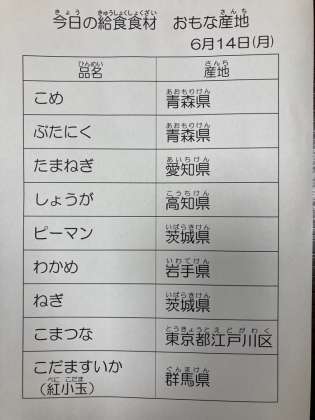 今日の給食食材　おもな産地
6月14日(月)
品名　産地
こめ　青森県
ぶたにく　青森県
たまねぎ　愛知県
しょうが　高知県
ピーマン　茨城県
わかめ　岩手県
ねぎ　茨城県
こまつな　東京都江戸川区
こだますいか
（紅小玉）　群馬県